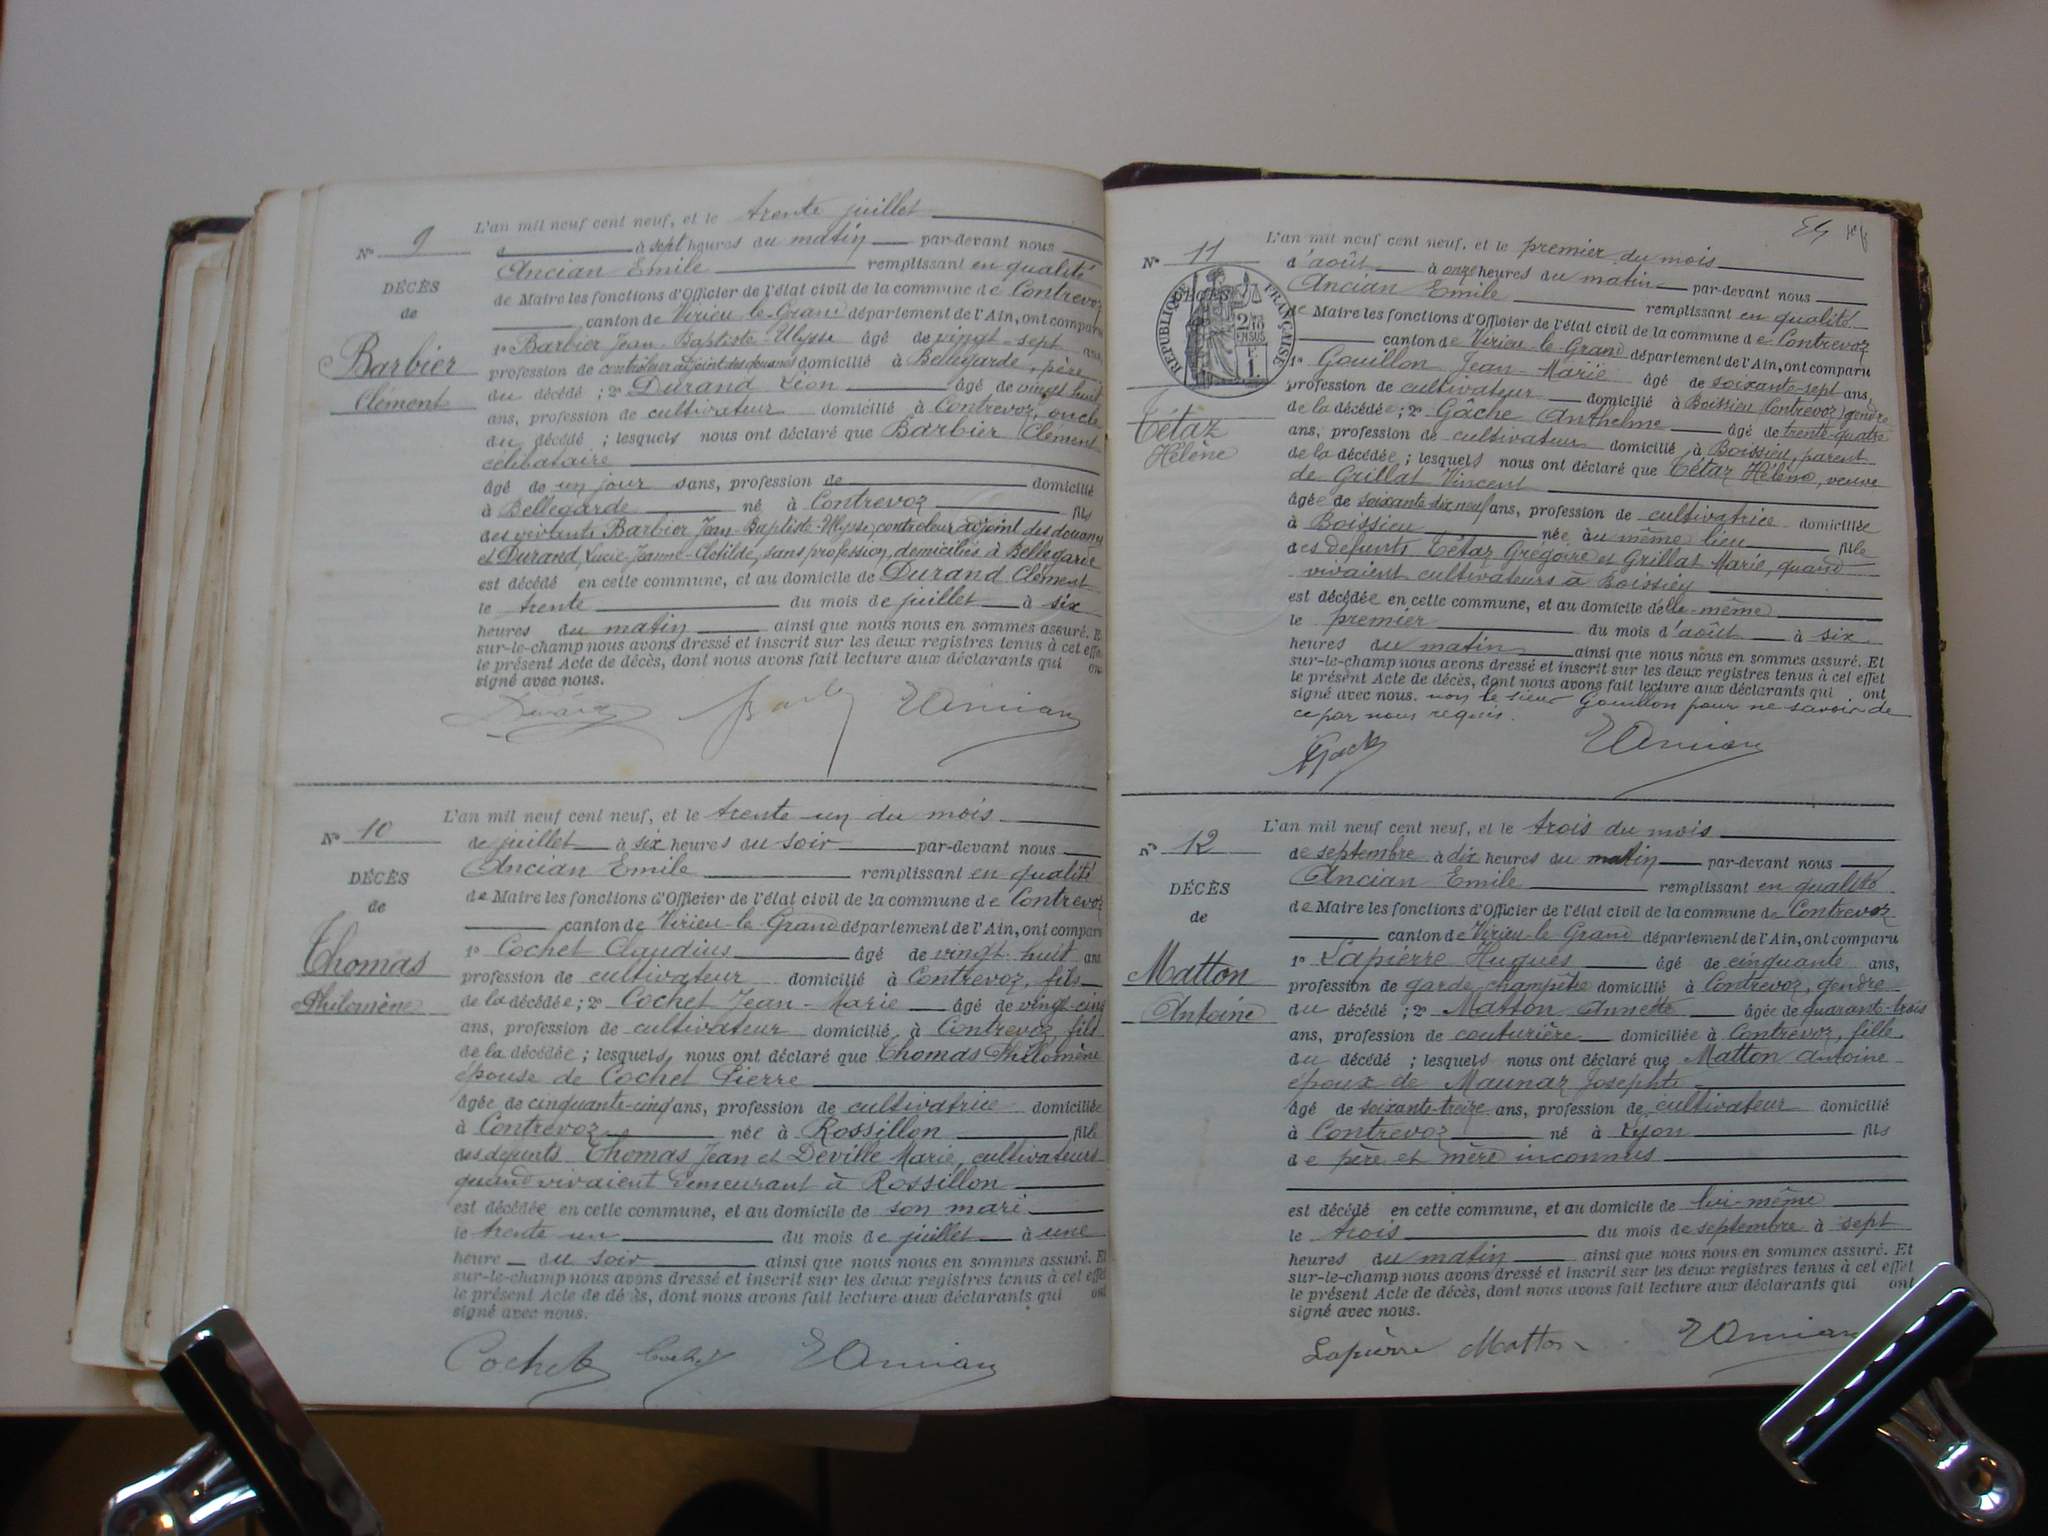 L'an mil neuf cent neuf, et le trente juillet
N° 9
à sept heures du matin par-devant nous
Ancian Emile remplissant en qualité
DÉCÈS
de Maire les fonctions d'Officier de l'état civil de la commune de Contrevoz
de
canton de Virieu-le-Grand département de l'Ain, ont comparu
1° Barbier Jean-Baptiste-Ulysse âgé de vingt-sept ans,
Barbier
profession de contrôleur adjoint des douanes domicilié à Bellegarde, père
Clément
du décédé ; 2° Durand Léon âgé de vingt huit
ans, profession de cultivateur domicilié à Contrevoz, oncle
du décédé ; lesquels nous ont déclaré que Barbier Clément
célibataire
âgé de un jour sans, profession de domicilié
à Bellegarde né à Contrevoz fils
des vivants Barbier Jean-Baptiste-Ulysse, contrôleur adjoint des douanes
et Durand, Lucie-Jeanne-Clotilde, sans profession, domiciliés à Bellegarde
est décédé en cette commune, et au domicile de Durand Clément
le trente du mois de juillet à six
heures du matin ainsi que nous nous en sommes assuré. Et
sur-le-champ nous avons dressé et inscrit sur les deux registres tenus à cet effet
le présent Acte de décès, dont nous avons fait lecture aux déclarants qui ont
signé avec nous.
EAncian
L'an mil neuf cent neuf, et le trente un du mois
N° 10
de juillet à six heures du soir par-devant nous
Ancian Emile remplissant en qualité
DÉCÈS
de Maire les fonctions d'Officier de l'état civil de la commune de Contrevoz
de
canton de Virieu-le-Grand département de l'Ain, ont comparu
1° Cochet Claudius âgé de vingt-huit ans
Thomas
profession de cultivateur domicilié à Contrevoz, fils
Philomène
de la décédée ; 2° Cochet Jean-Marie âgé de vingt-cinq
ans, profession de cultivateur domicilié à Contrevoz, fils
de la décédée ; lesquels nous ont déclaré que Thomas Philomène
épouse de Cochet Pierre
âgée de cinquante-cinq ans, profession de cultivatrice domiciliée
à Contrevoz née à Rossillon fille
des défunts Thomas Jean et Deville Marie, cultivateurs
quand vivaient demeurant à Rossillon
est décédée en cette commune, et au domicile de son mari
le trente un du mois de juillet à une
heure du soir ainsi que nous nous en sommes assuré. Et
sur-le-champ nous avons dressé et inscrit sur les deux registres tenus à cet effet
le présent Acte de décès, dont nous avons fait lecture aux déclarants qui ont
signé avec nous.
Cochet Cochet EAncian
54
L'an mil neuf cent neuf, et le premier du mois
N° 11
d'août à onze heures du matin par-devant nous
Ancian Emile remplissant en qualité
DÉCÈS
RÉPUBLIQUE FRANÇAISE
de Maire les fonctions d'Officier de l'état civil de la commune de Contrevoz
canton de Virieu-le-Grand département de l'Ain, ont comparu
1° Gouillon Jean-Marie âgé de soixante-sept ans,
profession de cultivateur domicilié à Boissieu (Contrevoz) gendre
de la décédée ; 2° Gâche Anthelme âgé de trente-quatre
Tétaz
ans, profession de cultivateur domicilié à Boissieu, parent
Hélène
de la décédée ; lesquels nous ont déclaré que Tétaz Hélène, veuve
de Grillat Vincent
âgée de soixante dix neuf ans, profession de cultivatrice domiciliée
à Boissieu née au même lieu fille
des défunts Tétaz Grégoire et Grillat Marie, quand
vivaient cultivateurs à Boissieu
est décédée en cette commune, et au domicile d'elle-même
le premier du mois d'août à six
heures du matin ainsi que nous nous en sommes assuré. Et
sur-le-champ nous avons dressé et inscrit sur les deux registres tenus à cet effet
le présent Acte de décès, dont nous avons fait lecture aux déclarants qui ont
signé avec nous. non le sieur Gouillon pour ne savoir de
ce par nous requis.
EAncian
L'an mil neuf cent neuf, et le trois du mois
N° 12
de septembre à dix heures du matin par-devant nous
Ancian Emile remplissant en qualité
DÉCÈS
de Maire les fonctions d'Officier de l'état civil de la commune de Contrevoz
de
canton de Virieu-le-Grand département de l'Ain, ont comparu
1° Lapierre Hugues âgé de cinquante ans,
Matton
profession de garde champêtre domicilié à Contrevoz, gendre
Antoine
du décédé ; 2° Matton Annette âgée de quarante-trois
ans, profession de couturière domiciliée à Contrevoz, fille
du décédé ; lesquels nous ont déclaré que Matton Antoine
époux de Maunaz Josephte
âgé de soixante-treize ans, profession de cultivateur domicilié
à Contrevoz né à Lyon fils
de père et mère inconnus
est décédé en cette commune, et au domicile de lui-même
le trois du mois de septembre à sept
heures du matin ainsi que nous nous en sommes assuré. Et
sur-le-champ nous avons dressé et inscrit sur les deux registres tenus à cet effet
le présent Acte de décès, dont nous avons fait lecture aux déclarants qui ont
signé avec nous.
Lapierre Matton EAncian